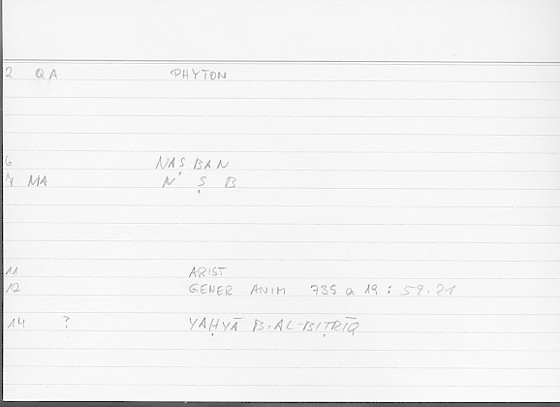 2 QA PHYTON
6 NAṢBAN
7 MA N Ṣ B
11 ARIST
12 GENER ANIM 735 a 19 : 59.21
14 ? YAḤYĀ B.AL-BIṬRĪQ